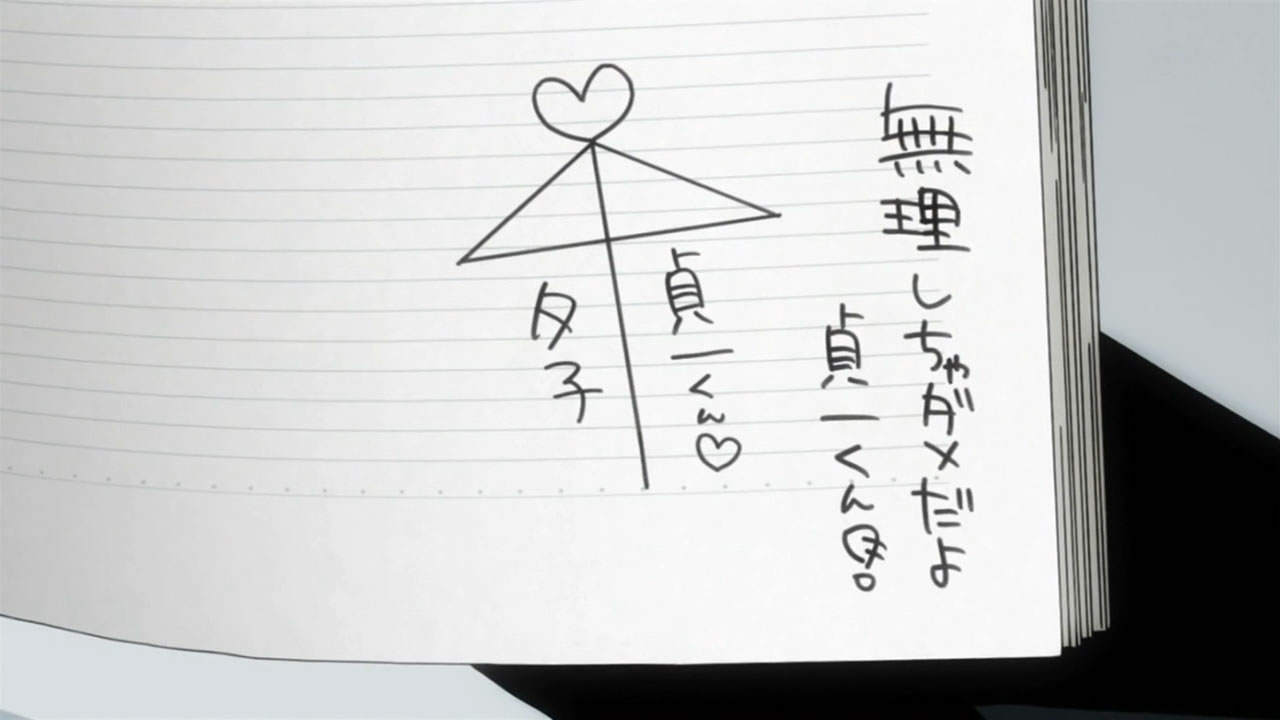 無理しちゃダメだよ
貞一くん
貞一くん♡
夕子